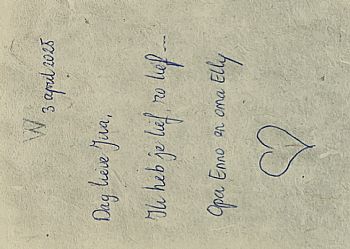 W
3 april 2025
Dag lieve Jina,
Ik heb je lief, zo lief ---
Opa Enno en oma Elly